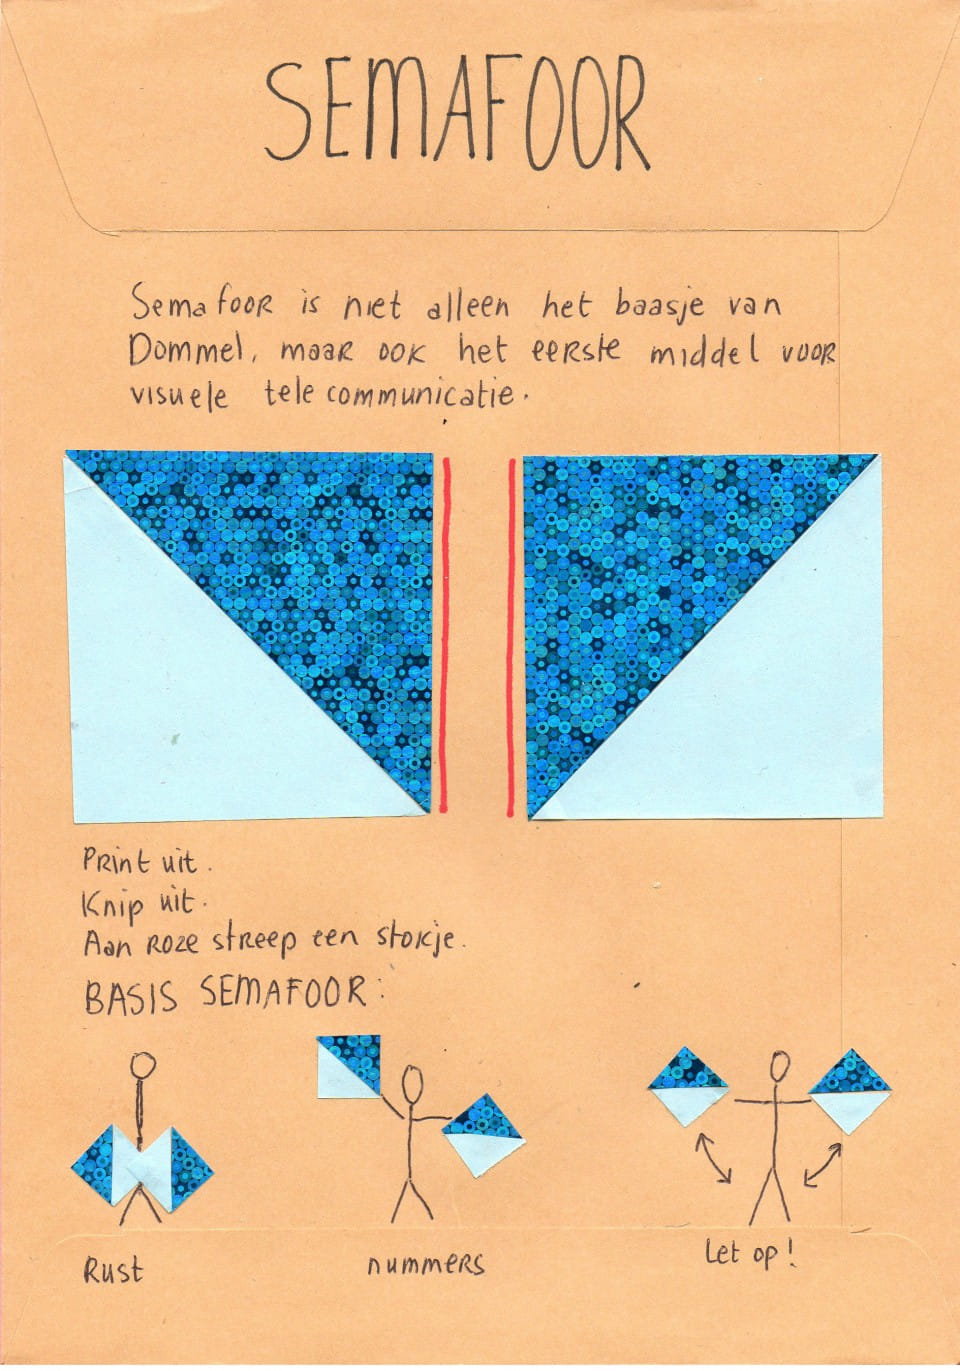 SEMAFOOR
Semafoor is niet alleen het baasje van
Dommel, maar ook het eerste middel voor
visuele telecommunicatie.
Print uit.
Knip uit.
Aan roze streep een stokje.
BASIS SEMAFOOR:
Rust
nummers
Let op!